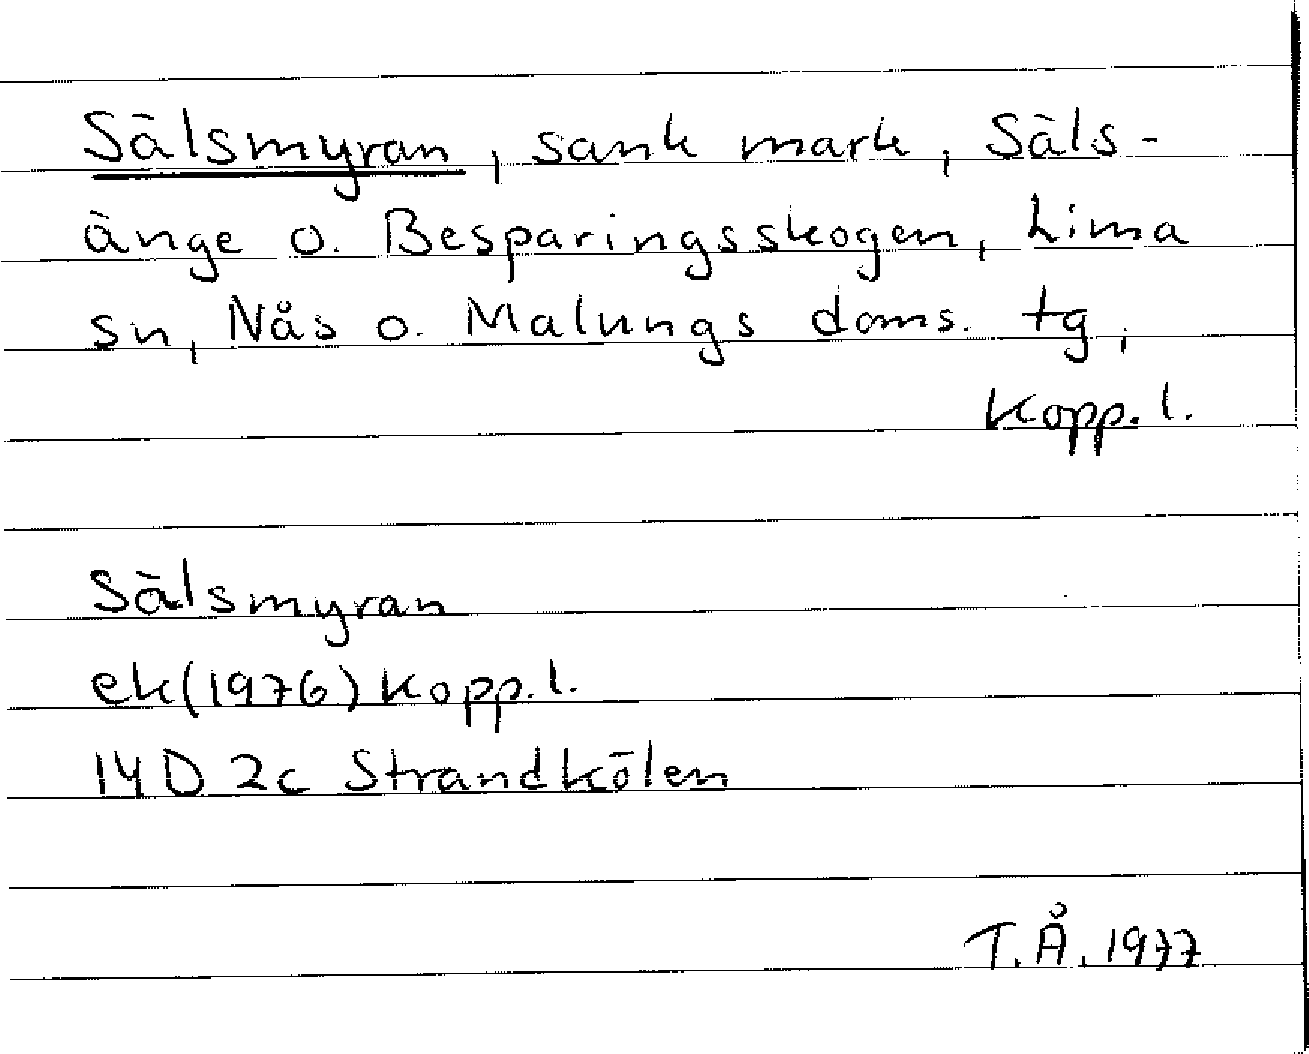 Sälsmyran, sank mark, Säls-
änge o. Besparingsskogen, Lima
sn, Nås o. Malungs doms. tg,
Kopp. l.
Sälsmyran
ek(1976) Kopp. l.
14D 2c Strandkölen
T.Å. 1977